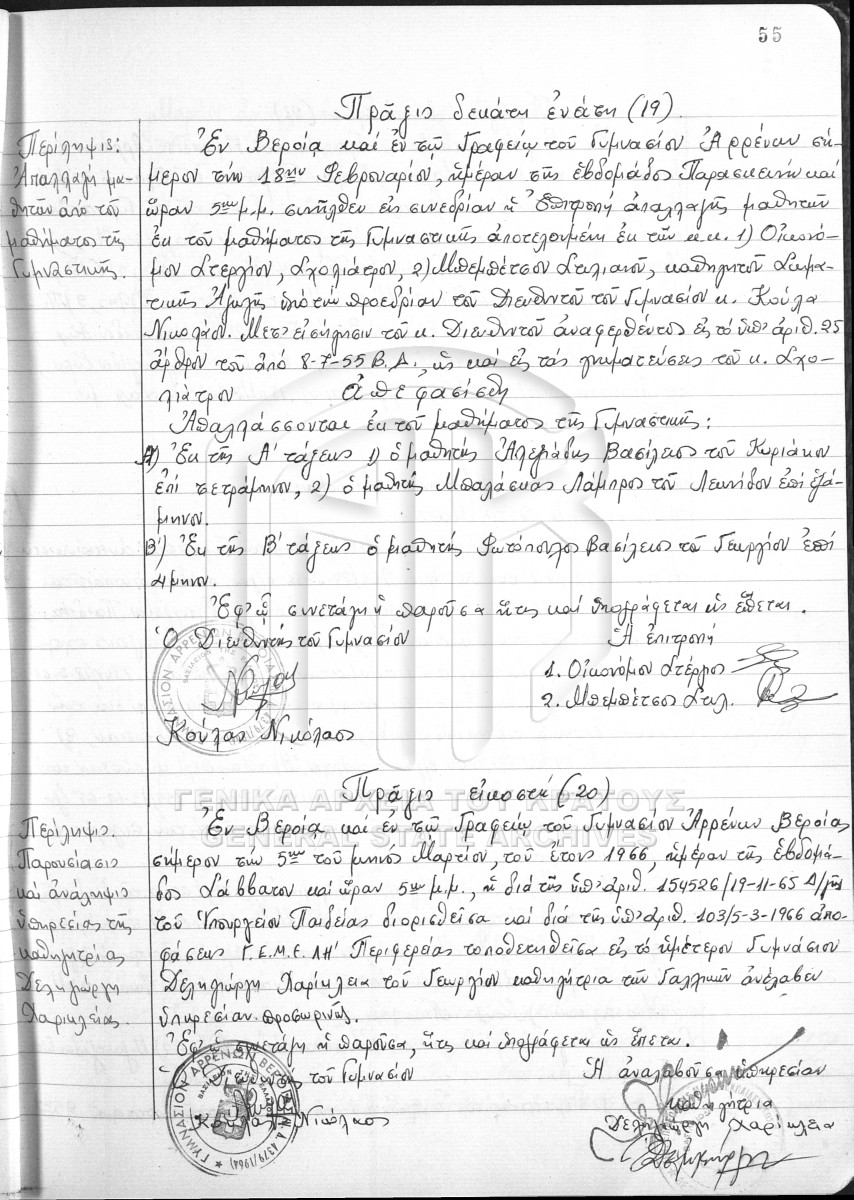 55
Πρᾶξις δεκάτη ἐνάτη (19)
Περίληψις:
Ἀπαλλαγή μα-
θητῶν ἀπό τοῦ
μαθήματος τῆς
Γυμναστικῆς.
Ἐν Βεροίᾳ καί ἐν τῷ Γραφείῳ τοῦ Γυμνασίου Ἀρρένων σή-
μερον τήν 18ην Φεβρουαρίου, ἡμέραν τῆς ἑβδομάδος Παρασκευήν καί
ὥραν 5ην μ.μ. συνῆλθεν εἰς συνεδρίαν ἡ Ἐπιτροπή ἀπαλλαγῆς μαθητῶν
ἐκ τοῦ μαθήματος τῆς Γυμναστικῆς ἀποτελουμένη ἐκ τῶν κ.κ. 1) Οἰκονό-
μου Στεργίου, Σχολιάτρου, 2) Μπεμπέτσου Στυλιανοῦ, καθηγητοῦ Σωμα-
τικῆς Ἀγωγῆς ὑπό τήν προεδρίαν τοῦ Διευθυντοῦ τοῦ Γυμνασίου κ. Κούλα
Νικολάου. Μετ' εἰσήγησιν τοῦ κ. Διευθυντοῦ ἀναφερθέντος εἰς τό ὑπ' ἀριθ. 25
ἄρθρον τοῦ ἀπό 8-7-55 Β.Δ., ὡς καί εἰς τάς γνωματεύσεις τοῦ κ. Σχο-
λιάτρου ἀπεφασίσθη
Ἀπαλλάσσονται ἐκ τοῦ μαθήματος τῆς Γυμναστικῆς:
Α) Ἐκ τῆς Α' τάξεως 1) ὁ μαθητής Βασίλειος τοῦ Κυριάκου
ἐπί τετράμηνον, 2) ὁ μαθητής Μπαλάσκας Λάμπρος τοῦ Λεωνίδου ἐπί ἑξά-
μηνον.
Β') Ἐκ τῆς Β' τάξεως ὁ μαθητής Φωτόπουλος Βασίλειος τοῦ Γεωργίου ἐπί
4μηνον.
Ἐφ' ᾧ συνετάγη ἡ παροῦσα ἥτις καί ὑπογράφεται ὡς ἕπεται.
Ὁ Διευθυντής τοῦ Γυμνασίου
Ἡ ἐπιτροπή
1. Οἰκονόμου Στέργιος
2. Μπεμπέτσος Στυλ.
Κούλας Νικόλαος
Πρᾶξις εἰκοστή (20)
ΓΕΝΙΚΑ ΑΡΧΕΙΑ ΤΟΥ ΚΡΑΤΟΥΣ
GENERAL STATE ARCHIVES
Περίληψις.
Παρουσίασις
καί ἀνάληψις
ὑπηρεσίας τῆς
καθηγητρίας
Δεληγιώργη
Χαρικλείας.
Ἐν Βεροίᾳ καί ἐν τῷ Γραφείῳ τοῦ Γυμνασίου Ἀρρένων Βεροίας
σήμερον τήν 5ην τοῦ μηνός Μαρτίου, τοῦ ἔτους 1966, ἡμέραν τῆς ἑβδομά-
δος Σάββατον καί ὥραν 5ην μ.μ., ἡ διά τῆς ὑπ' ἀριθ. 154526/19-11-65 Δ/γῆς
τοῦ Ὑπουργείου Παιδείας διορισθεῖσα καί διά τῆς ὑπ' ἀριθ. 103/5-3-1966 ἀπο-
φάσεως Γ.Ε.Μ.Ε. ΛΗ' Περιφερείας τοποθετηθεῖσα εἰς τό ἡμέτερον Γυμνάσιον
Δεληγιώργη Χαρίκλεια τοῦ Γεωργίου καθηγήτρια τῶν Γαλλικῶν ἀνέλαβεν
ὑπηρεσίαν προσωρινῶς.
Ἐφ' ᾧ συνετάγη ἡ παροῦσα, ἥτις καί ὑπογράφεται ὡς ἕπεται.
Ὁ Διευθυντής τοῦ Γυμνασίου
Ἡ ἀναλαβοῦσα ὑπηρεσίαν
καθηγήτρια
Κούλας Νικόλαος
Δεληγιώργη Χαρίκλεια
ΓΥΜΝΑΣΙΟΝ ΑΡΡΕΝΩΝ ΒΕΡΟΙΑΣ Ν.Δ. 4379/1964